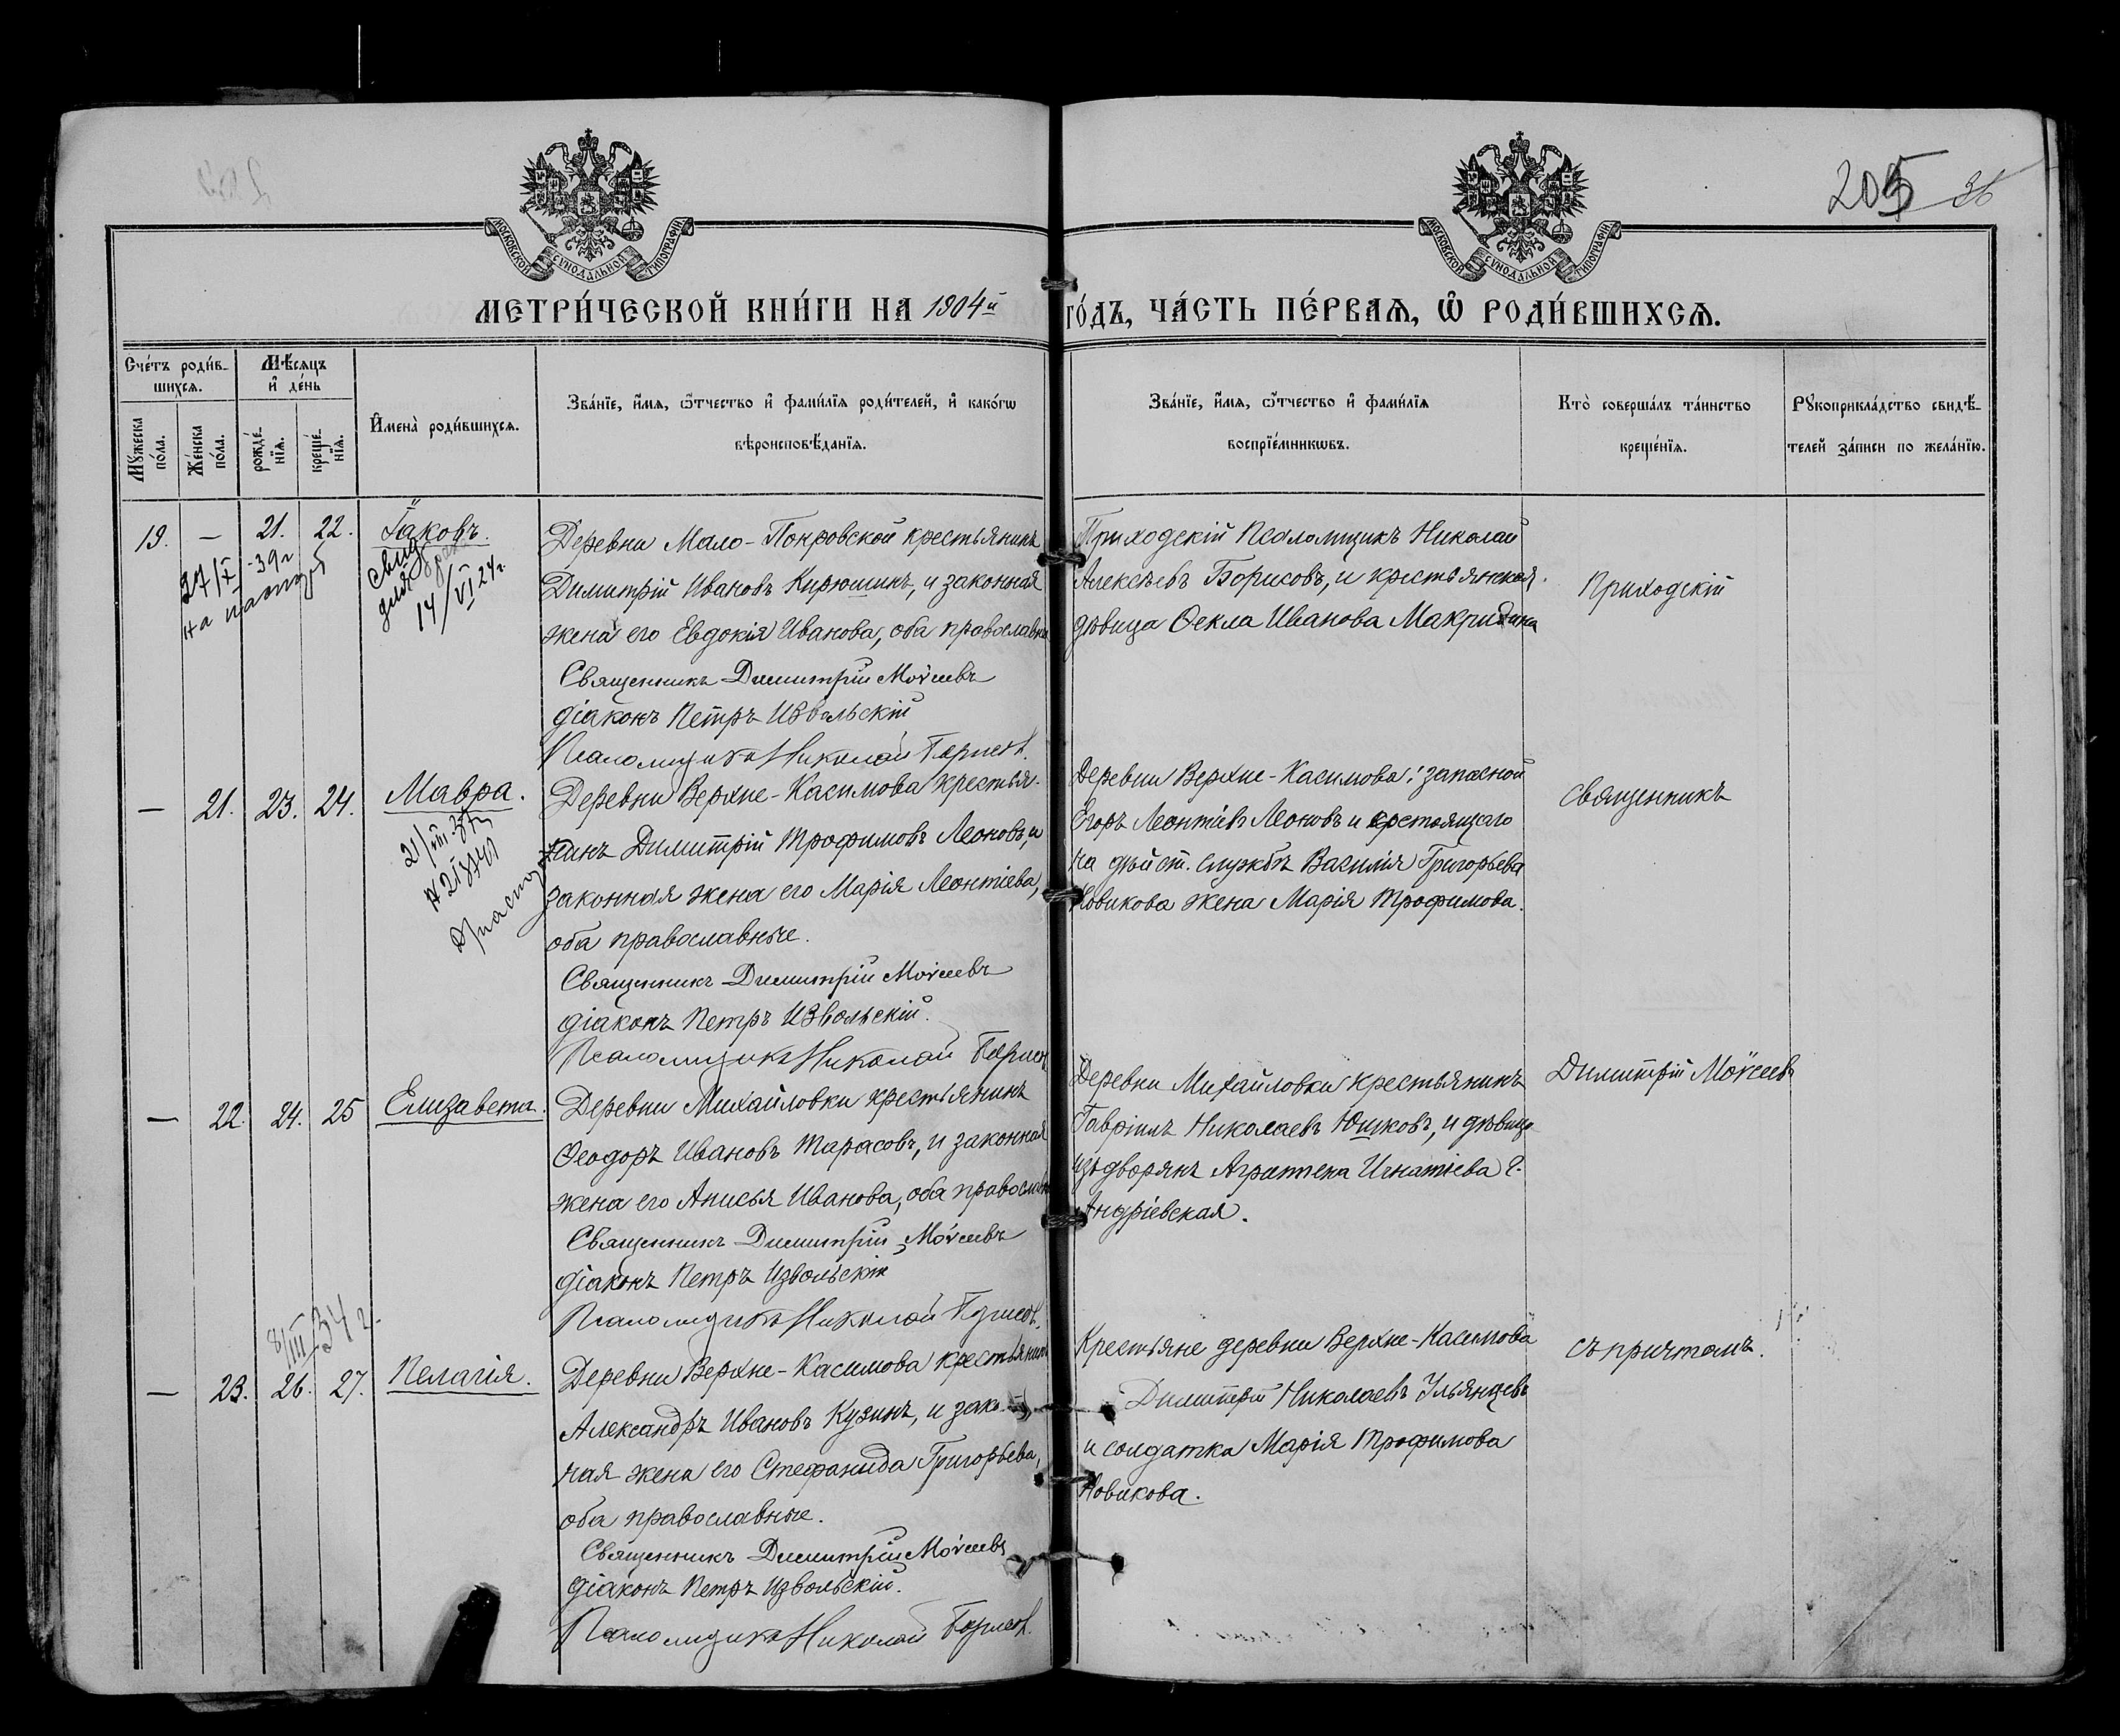 205 36
МОСКОВСКОЙ СѴНОДАЛЬНОЙ ТИПОГРАФІИ
МОСКОВСКОЙ СѴНОДАЛЬНОЙ ТИПОГРАФІИ
МЕТРИ́ЧЕСКОЙ КНИ́ГИ НА 1904й ГО́ДЪ, ЧА́СТЬ ПЕ́РВАѦ, Ѡ҆ РОДИ́ВШИХСѦ.
Сче́тъ роди́в-
шихсѧ.
Мѣ́сѧцъ
и҆ де́нь
Мꙋ́жеска
по́ла.
Же́нска
по́ла.
рожде́-
нїѧ.
креще́-
нїѧ.
И҆мена̀ роди́вшихсѧ.
Зва́нїе, и҆́мѧ, ѻ҆́тчество и҆ фами́лїѧ роди́телей, и҆ како́гѡ
вѣроисповѣ́данїѧ.
Зва́нїе, и҆́мѧ, ѻ҆́тчество и҆ фами́лїѧ
воспрїе́мникѡвъ.
Кто̀ соверша́лъ та́инство
креще́нїѧ.
Рꙋкоприкла́дство свидѣ́-
телей за́писи по жела́нїю.
19. — 21. 22. Іаковъ.
27/X-39г
на паспорт
свид
для брака
14/VI 24г.
Деревни Мало-Покровской крестьянинъ
Димитрій Ивановъ Кирюшинъ, и законная
жена его Евдокія Иванова, оба православны
Священникъ Димитрій Моѵсеевъ
діаконъ Петръ Извольскій
Псаломщикъ Николай Борисов.
Приходскій Псаломщикъ Николай
Алексѣевъ Борисовъ, и крестьянская
дѣвица Ѳекла Иванова Макридина
Приходскій
— 21. 23. 24. Мавра.
21/VIII
паспорт
Деревни Верхне-Касимова крестья-
нинъ Димитрій Трофимовъ Леоновъ, и
законная жена его Марія Леонтіева,
оба православные.
Священникъ Димитрій Моѵсеевъ
діаконъ Петръ Извольскій.
Псаломщикъ Николай Борисов
Деревни Верхне-Касимова: запасной
Егоръ Леонтіевъ Леоновъ и состоящаго
на дѣйст. службѣ Василія Григорьева
Новикова жена Марія Трофимова.
священникъ
— 22. 24. 25 Елизавета.
Деревни Михайловки крестьянинъ
Ѳеодоръ Ивановъ Тарасовъ, и законная
жена его Анисья Иванова, оба православн
Священникъ Димитрій Моѵсеевъ
діаконъ Петръ Извольскій
Псаломщикъ Николай Борисов.
Деревни Михайловки крестьянинъ
Гавріилъ Николаевъ Юшковъ, и дѣвица
изъ дворянъ Агриппена Игнатіева
Андріевская.
Димитрій Моѵсеевъ
8/III 34 г.
— 23. 26. 27. Пелагія.
Деревни Верхне-Касимова крестьянинъ
Александръ Ивановъ Кузинъ, и закон-
ная жена его Стефанида Григорьева,
оба православные.
Священникъ Димитрій Моѵсеевъ
діаконъ Петръ Извольскій.
Псаломщикъ Николай Борисов.
Крестьяне деревни Верхне-Касимова
Димитрій Николаевъ Ульянцевъ
и солдатка Марія Трофимова
Новикова.
съ причтомъ.